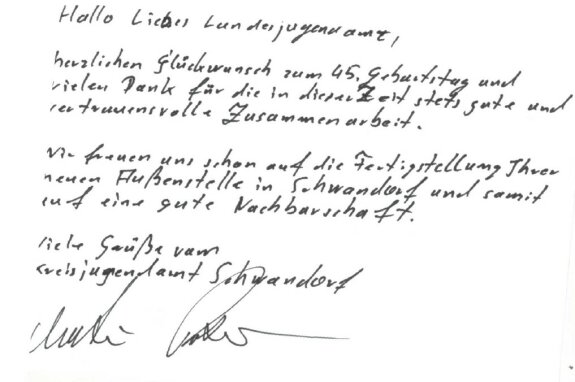 Hallo Liebes Landesjugendamt,
herzlichen Glückwunsch zum 45. Geburtstag und
vielen Dank für die in dieser Zeit stets gute und
vertrauensvolle Zusammenarbeit.
Wir freuen uns schon auf die Fertigstellung Ihrer
neuen Außenstelle in Schwandorf und somit
auf eine gute Nachbarschaft.
Liebe Grüße vom
Kreisjugendamt Schwandorf